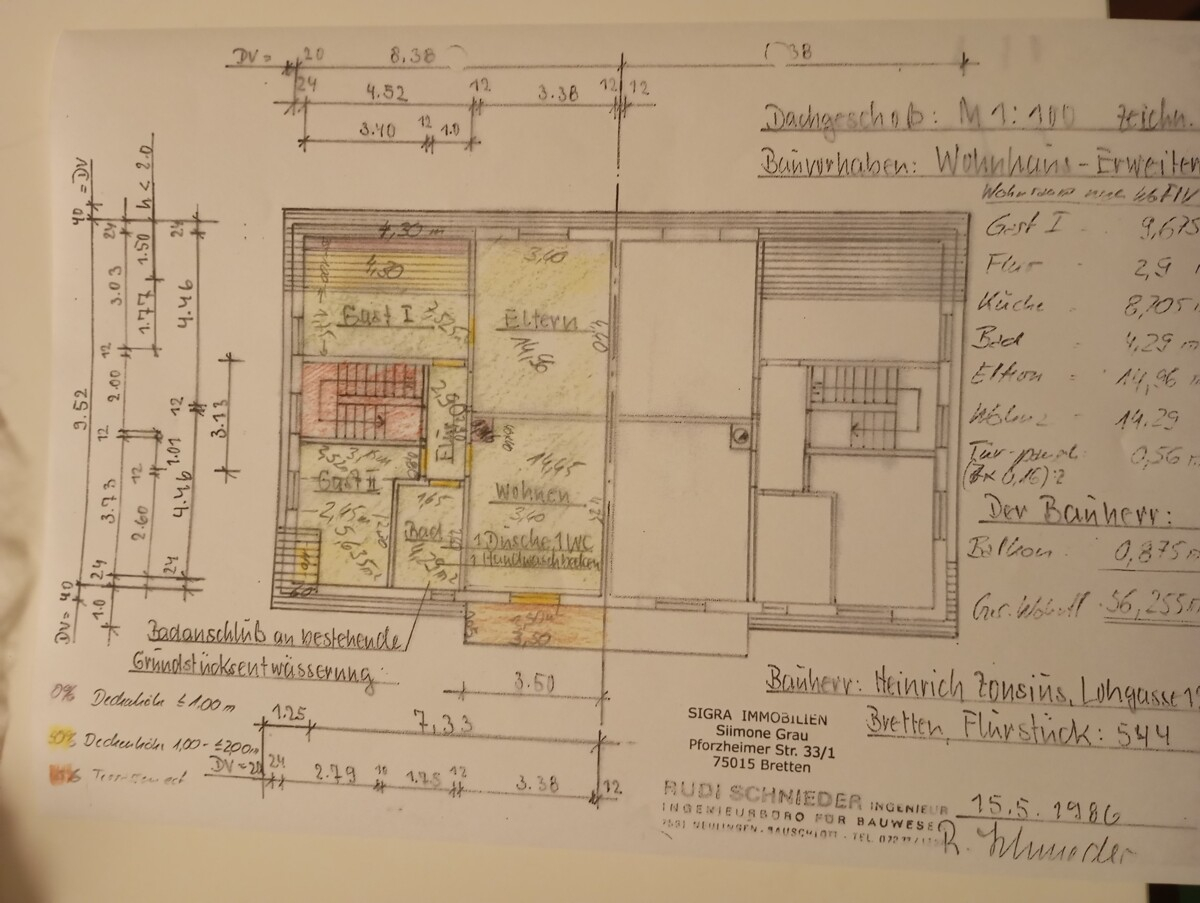 DV= 20 8.38 38
24 4.52 12 3.38 12 12
3.40 12 1.0
Dachgeschoß: M 1:100 zeichn.
Bauvorhaben: Wohnhaus-Erweiter
Gast I 9,675
Flur 2,9
Küche 8,705
Bad 4,29 m
Eltern = 14,96 m
14.29
0,56 m
(7x 0,16):2
Der Bauherr:
Balkon: 0,875 m
56,255m
40 =DV
24 3.03 12 2.00 12 3.73 24
9.52
h < 2.0
1.50 1.77
12 2.60
24 4.46 12 4.46 24
1.01
3.13
DV= 40
1.0
4,30 m
4,30
Gast I
3,40
Eltern
14,96
4,40
Flur
2,90
Gast II
2,45m
5,635m²
1,65
Bad
4,29m²
14,45
Wohnen
3,40
1 Dusche, 1 WC
1 Handwaschbecken
3,50
Badanschluß an bestehende
Grundstücksentwässerung:
3.50
1.25 7,33
DV=20 24 2.79 10 1.75 12 3.38 12
0% Deckenhöhe ≤ 1.00 m
50% Deckenhöhe 1,00 - ≤ 2,00m
Bauherr: Heinrich Zonsius, Lohgasse
Bretten, Flurstück: 544
SIGRA IMMOBILIEN
Siimone Grau
Pforzheimer Str. 33/1
75015 Bretten
RUDI SCHNIEDER INGENIEUR
INGENIEURBÜRO FÜR BAUWESE
NEULINGEN-BAUSCHLOTT - TEL.
15.5.1986
R. Schnieder